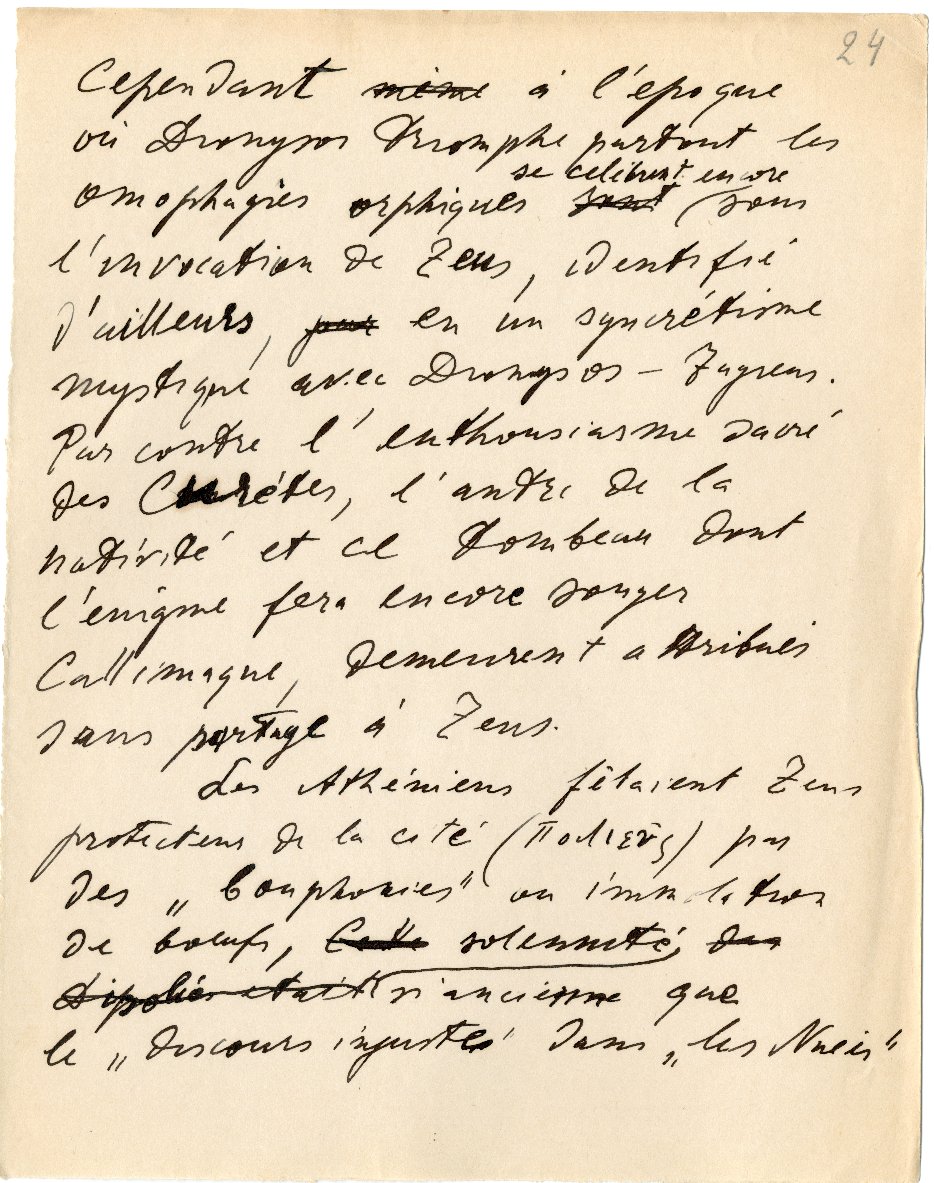 24
Cependant même à l'époque
où Dionysos triomphe partout les
se célèbrent encore
omophagies orphiques sont sous
l'invocation de Zeus, identifié
d'ailleurs, par en un syncrétisme
mystique avec Dionysos – Zagreus.
Par contre l'enthousiasme sacré
des Curètes, l'antre de la
nativité et ce tombeau dont
l'énigme fera encore songer
Callimaque, demeurent attribués
sans partage à Zeus.
Les Athéniens fêtaient Zeus
protecteur de la cité (Πολιεῦς) par
des „bouphonies" ou immolation
de bœufs, Cette solennité, des
Dipolies était si ancienne que
le „discours injuste" dans „les Nuées"